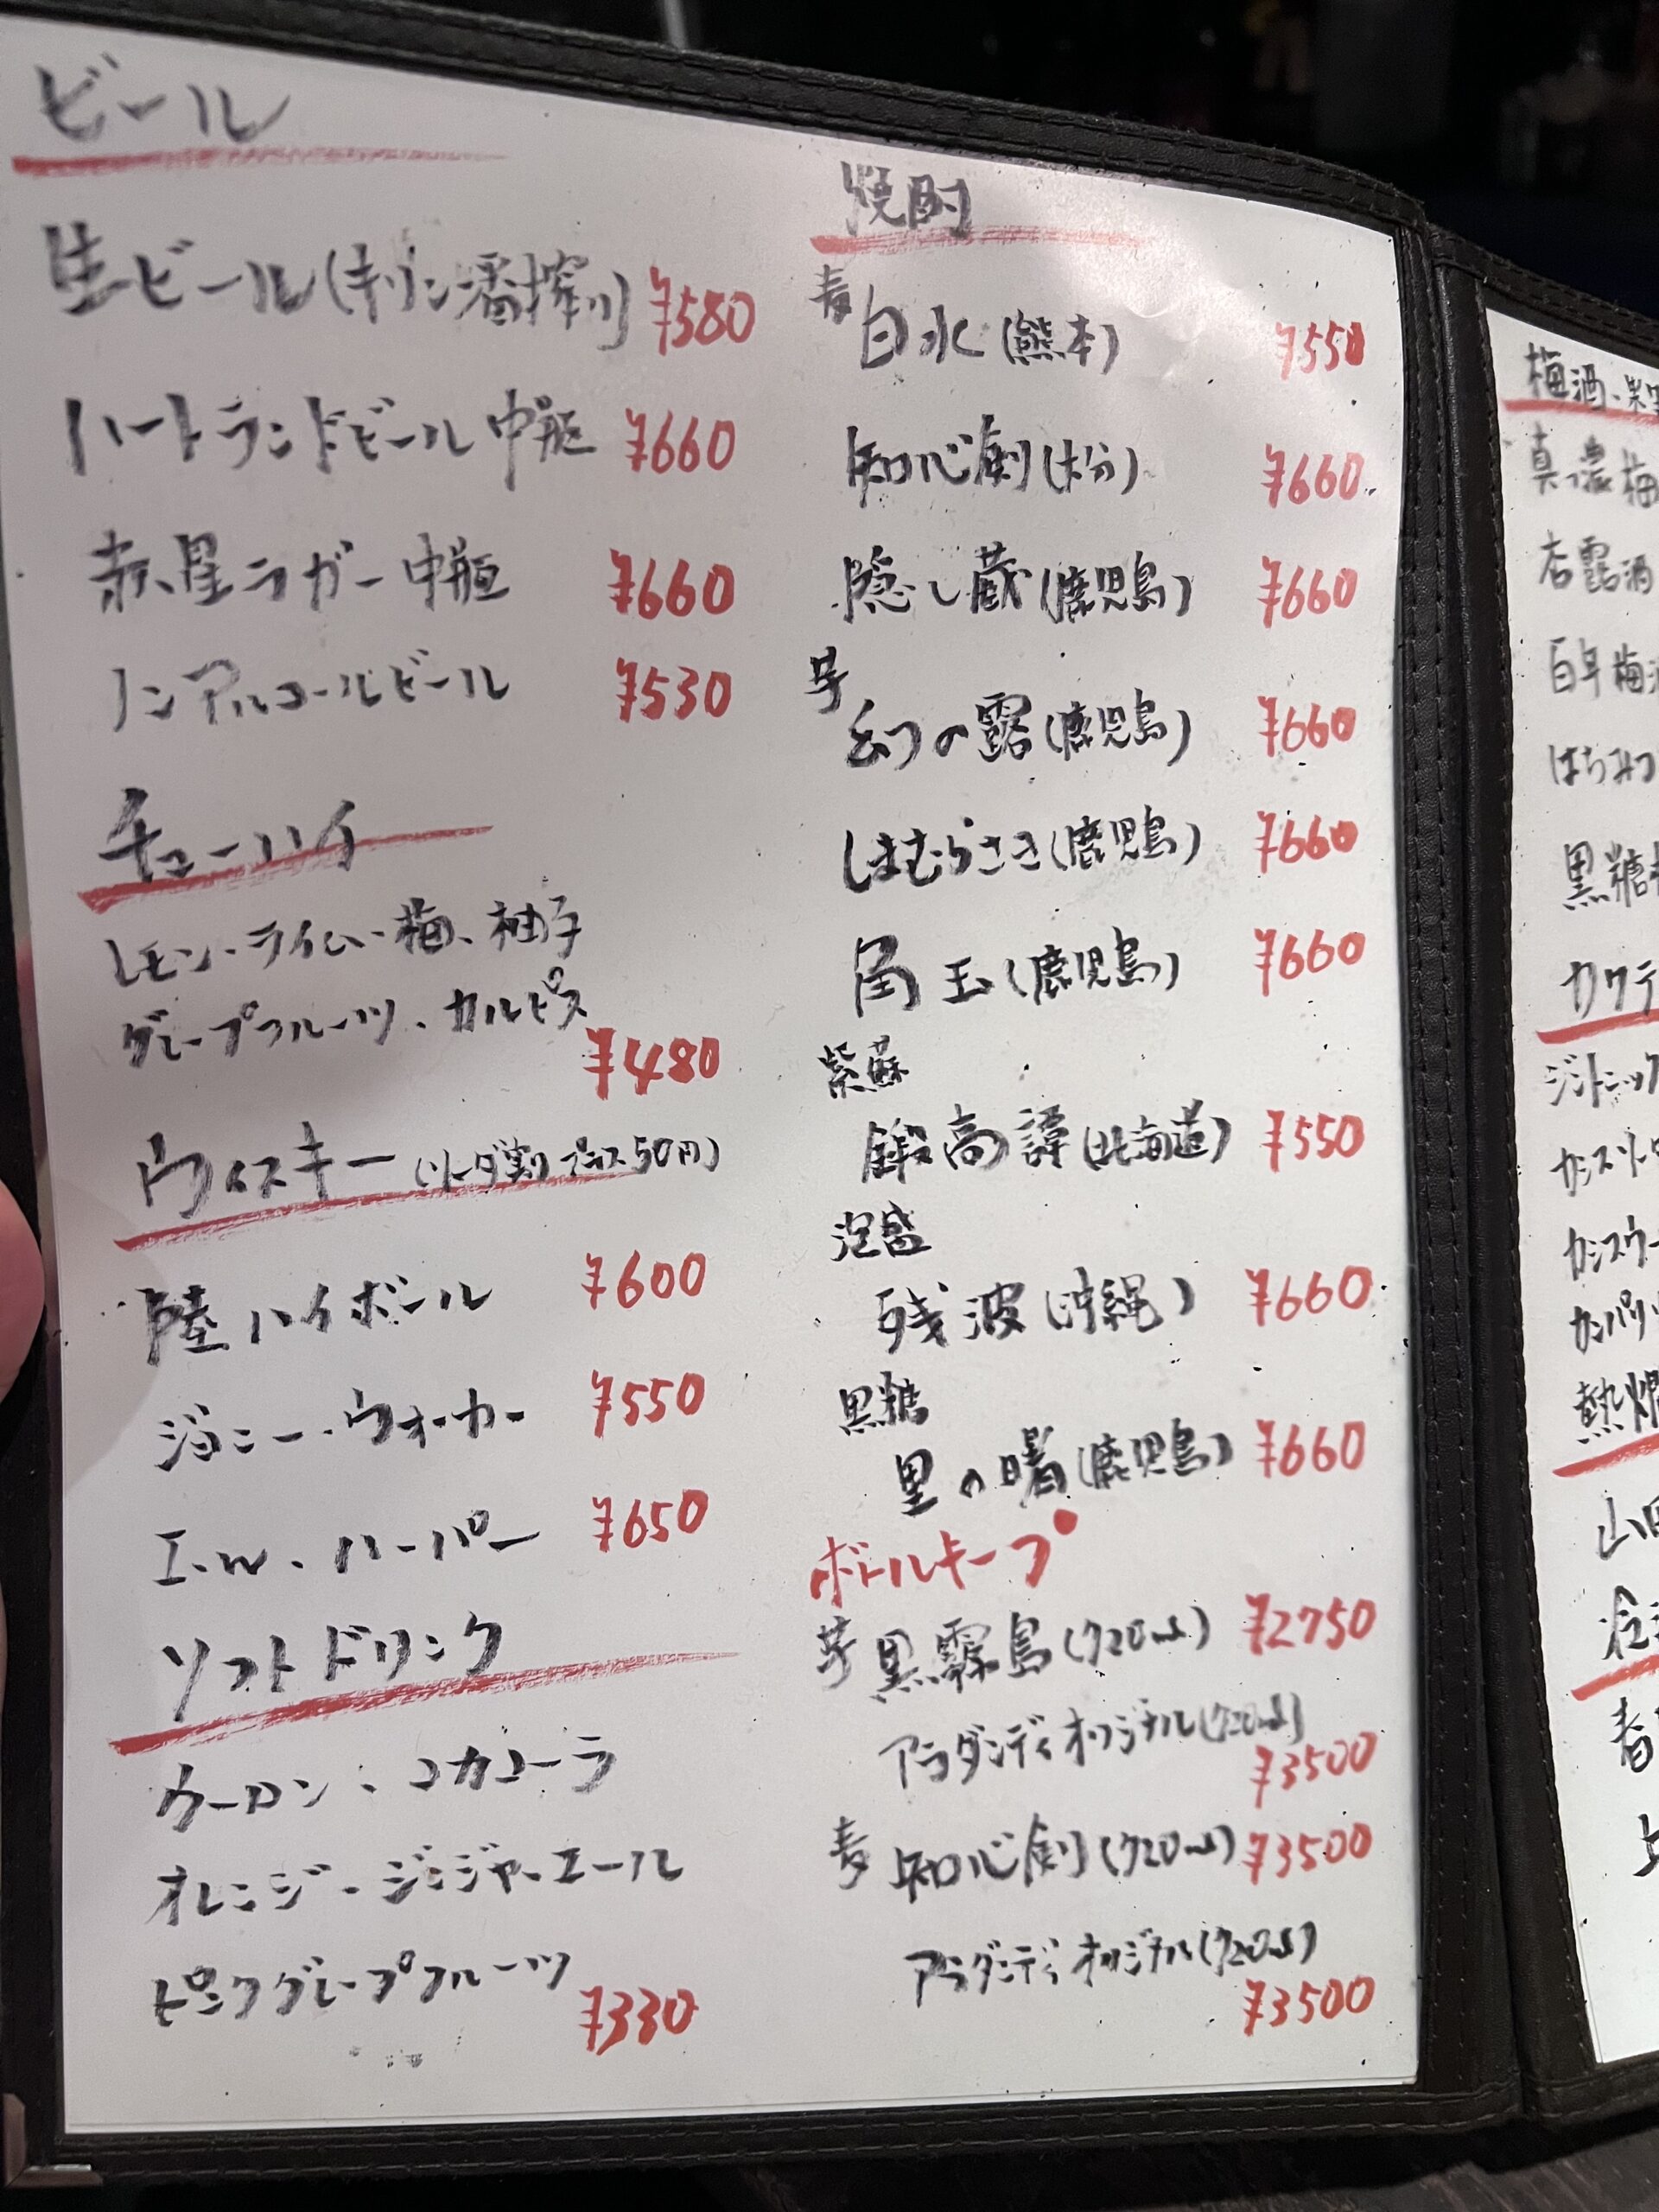 ビール
生ビール(キリン一番搾り) ¥580
ハートランドビール 中瓶 ¥660
赤星ラガー 中瓶 ¥660
ノンアルコールビール ¥530
チューハイ
レモン・ライム・梅、柚子
グレープフルーツ、カルピス
¥480
ウィスキー(ソーダ割プラス50円)
陸ハイボール ¥600
ジョニー・ウォーカー ¥550
I.W.ハーパー ¥650
ソフトドリンク
ウーロン、コカコーラ
オレンジ・ジンジャーエール
ピンクグレープフルーツ
¥330
焼酎
麦
白水(熊本) ¥550
知心剣(大分) ¥660
隠し蔵(鹿児島) ¥660
芋
幻の露(鹿児島) ¥660
しまむらさき(鹿児島) ¥660
角玉(鹿児島) ¥660
紫蘇
鍛高譚(北海道) ¥550
泡盛
残波(沖縄) ¥660
黒糖
里の曙(鹿児島) ¥660
ボトルキープ
芋 黒霧島(720ml) ¥2750
アラダンディオリジナル(720ml)
¥3500
麦 知心剣(720ml) ¥3500
アラダンディオリジナル(720ml)
¥3500
梅酒、果実
真っ濃 梅
杏露酒
百年梅酒
はちみつ
黒糖梅
カクテ
ジントニック
カシスソーダ
カシスウー
カンパリソ
熱燗
山田
冷
春
上